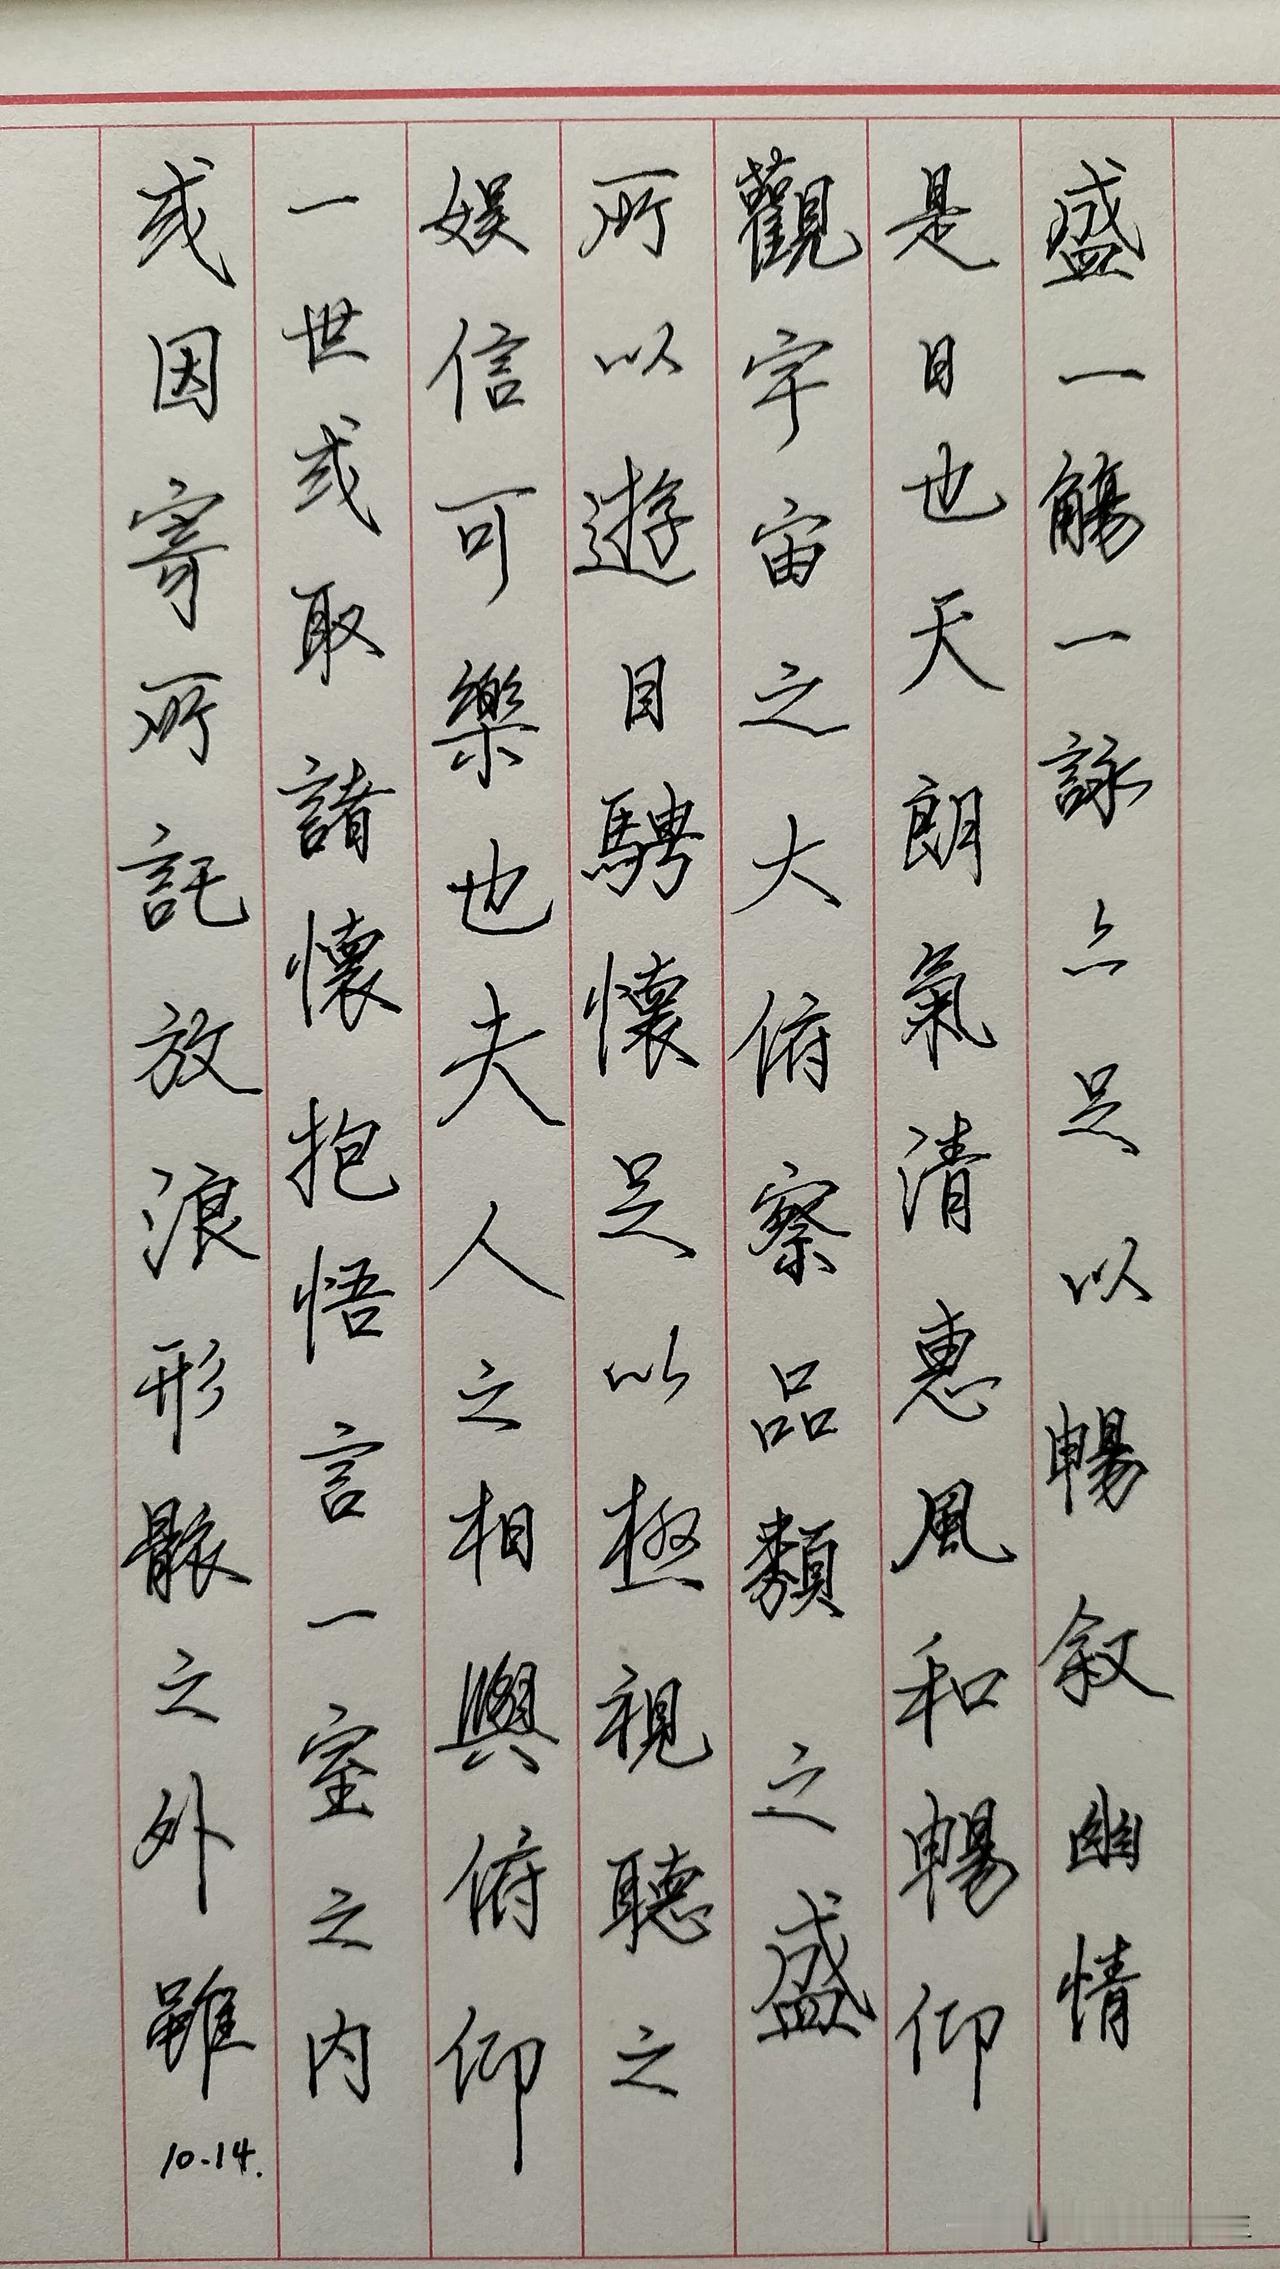 盛一觴一詠亦足以暢叙幽情
是日也天朗氣清惠風和暢仰
觀宇宙之大俯察品類之盛
所以遊目騁懷足以極視聽之
娱信可樂也夫人之相與俯仰
一世或取諸懷抱悟言一室之内
或因寄所託放浪形骸之外雖
10.14.